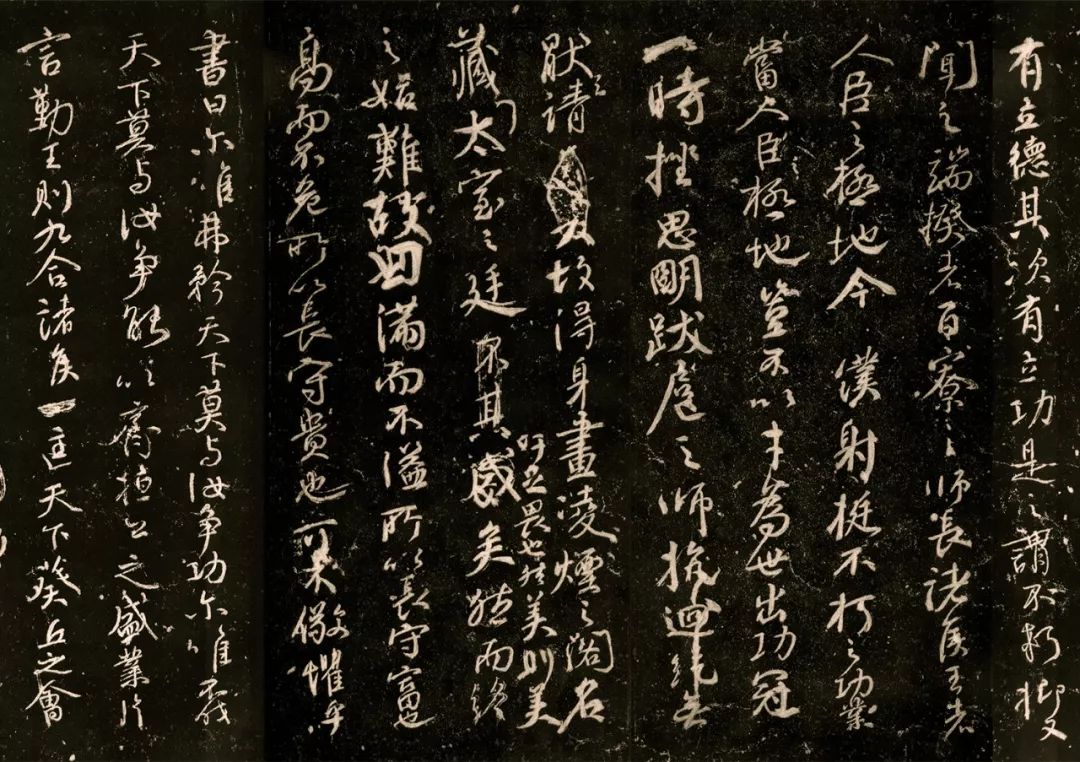 有立德其次有立功是之謂不朽抑又
聞之端揆者百寮之師長諸侯王者
人臣之極地今僕射挺不朽之功業
當人臣極之地豈不以才為世出功冠
一時挫思明跋扈之師抗迴紇無
厭之請故得身畫凌煙之閣名
藏太室之廷其盛矣然而終
吁足畏也然美則美
之始難故曰滿而不溢所以長守富也
高而不危所以長守貴也可不儆懼乎
書曰尔唯弗矜天下莫与汝爭功尔唯不伐
天下莫与汝爭能以齊桓公之盛業片
言勤王則九合諸侯一匡天下葵丘之會